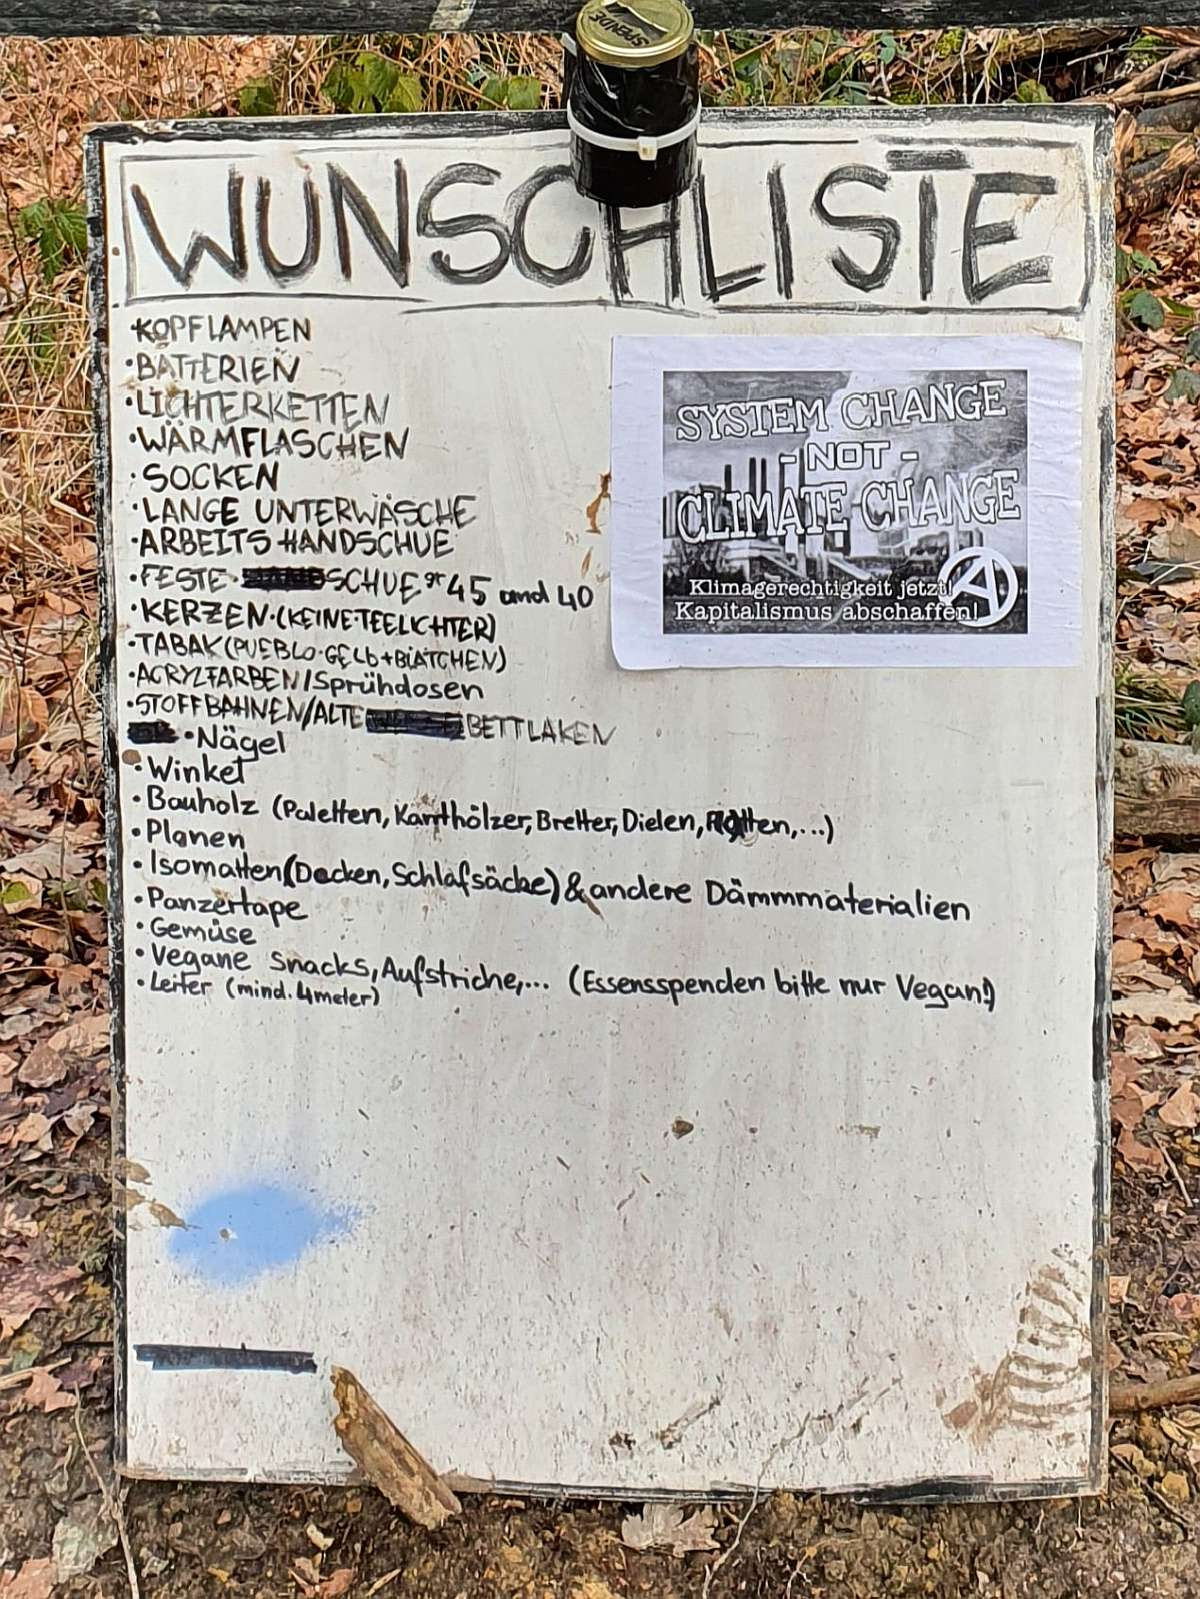 SPENDE
WUNSCHLISTE
•KOPFLAMPEN
•BATTERIEN
•LICHTERKETTEN
•WÄRMFLASCHEN
•SOCKEN
•LANGE UNTERWÄSCHE
•ARBEITSHANDSCHUE
•FESTE SCHUE gr 45 und 40
•KERZEN (KEINE TEELICHTER)
•TABAK (PUEBLO GELB + BLÄTCHEN)
•ACRYLFARBEN/Sprühdosen
•STOFFBAHNEN/ALTE BETTLAKEN
•Nägel
•Winkel
•Bauholz (Paletten, Kanthölzer, Bretter, Dielen, ...)
•Planen
•Isomatten (Decken, Schlafsäcke) & andere Dämmmaterialien
•Panzertape
•Gemüse
•Vegane Snacks, Aufstriche,... (Essensspenden bitte nur Vegan!)
•Leiter (mind. 4meter)
SYSTEM CHANGE
- NOT -
CLIMATE CHANGE
Klimagerechtigkeit jetzt!
Kapitalismus abschaffen!